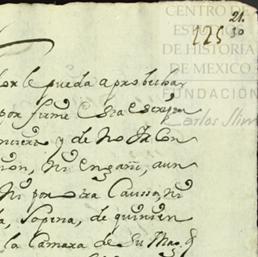 CENTRO DE
ESTUDIOS
DE HISTORIA
DE MEXICO
FUNDACIÓN
Carlos Slim
21
125 30
por le pueda aprobechar
por firme esta escrip
y de no ir con
ni engañe, aun
ni por otra Caussa, ni
da, so pena, de quinien
la Camara de su Mag.d